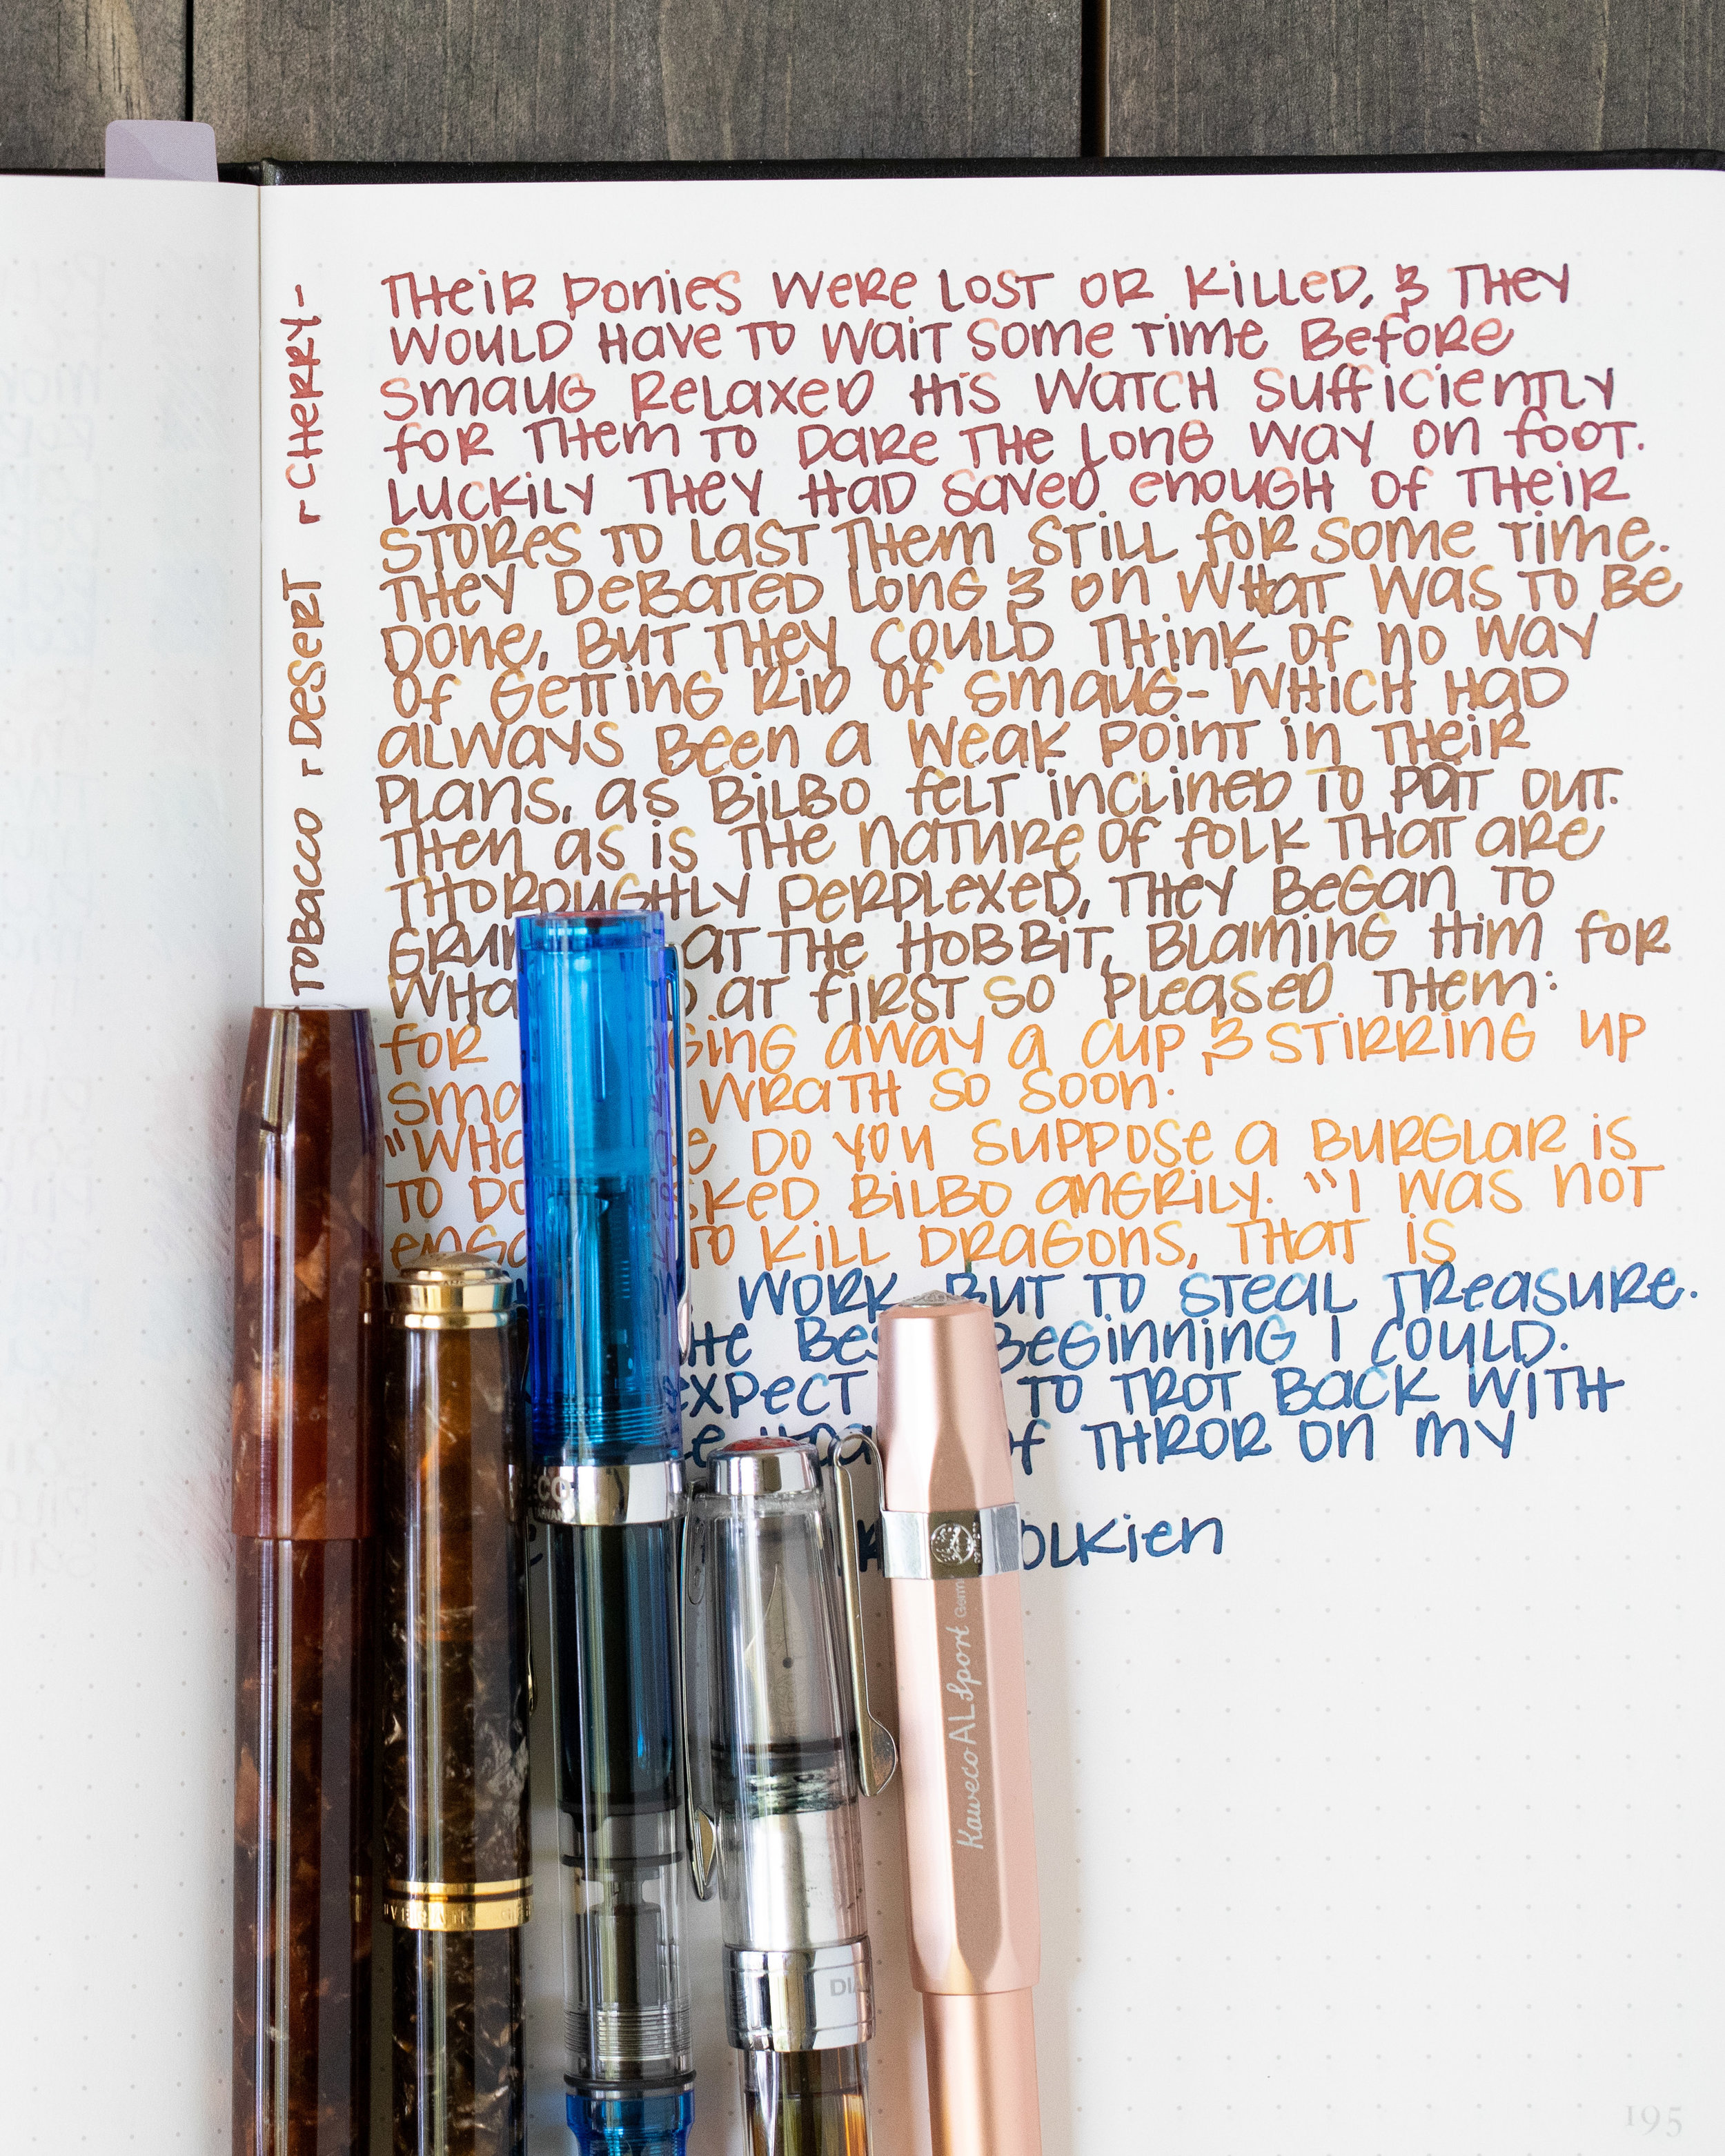 THEIR PONIES WERE LOST OR KILLED, & THEY
WOULD HAVE TO WAIT SOME TIME BEFORE
SMAUG RELAXED HIS WATCH SUFFICIENTLY
FOR THEM TO DARE THE LONG WAY ON FOOT.
LUCKILY THEY HAD SAVED ENOUGH OF THEIR
STORES TO LAST THEM STILL FOR SOME TIME.
THEY DEBATED LONG & ON WHAT WAS TO BE
DONE, BUT THEY COULD THINK OF NO WAY
OF GETTING RID OF SMAUG- WHICH HAD
ALWAYS BEEN A WEAK POINT IN THEIR
PLANS, AS BILBO FELT INCLINED TO POINT OUT.
THEN AS IS THE NATURE OF FOLK THAT ARE
THOROUGHLY PERPLEXED, THEY BEGAN TO
GRUM AT THE HOBBIT, BLAMING HIM FOR
WHA AT FIRST SO PLEASED THEM:
FOR GING AWAY A CUP & STIRRING UP
SMA WRATH SO SOON.
"WHA E DO YOU SUPPOSE A BURGLAR IS
TO DO SKED BILBO ANGRILY. "I WAS NOT
ENGA TO KILL DRAGONS, THAT IS
WORK BUT TO STEAL TREASURE.
HE BES BEGINNING I COULD.
EXPECT TO TROT BACK WITH
E HOA OF THROR ON MY
OLKIEN
CHERRY-
DESERT
TOBACCO
ECO
DIA
Kaweco AL Sport Germ
195